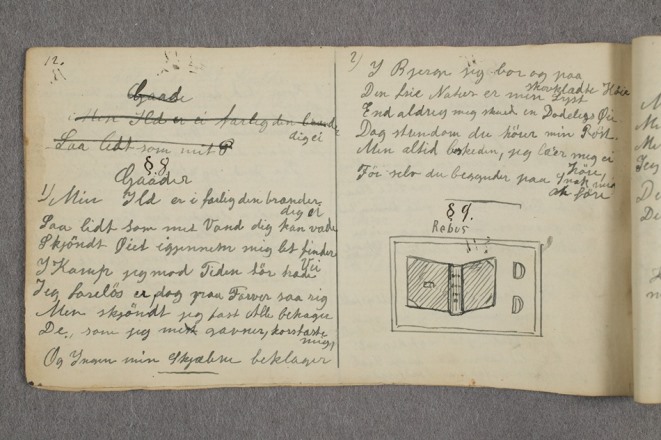 12.
Gaade
Min Ild er ei farlig den brænder
dig ei
Saa lidt som mit
§.8.
Gaader
1) Min Ild er i farlig den brænder
dig ei
Saa lidt som mit Vand dig kan væde
Skjöndt Öiet igjennem mig let finder
Vei
Y Kamp jeg mod Tiden tör træde
Jeg farvelös er dog paa Farver saa rig
Men skjöndt jeg fast Alle behager
De, som jeg mest gavner, korsfæste
mig,
Og Yngen min Skjæbne beklager
2) Y Bjerge jeg bor og paa
skovklædte Höie
Den frie Natur er min Lyst
End aldrig mig skued en Dödeligs Öie
Dog stundom du hörer min Röst.
Men altid beskeden, jeg lader mig ei
höre,
För selv du begynder paa Snak mig
at före
§ 9.
Rebus